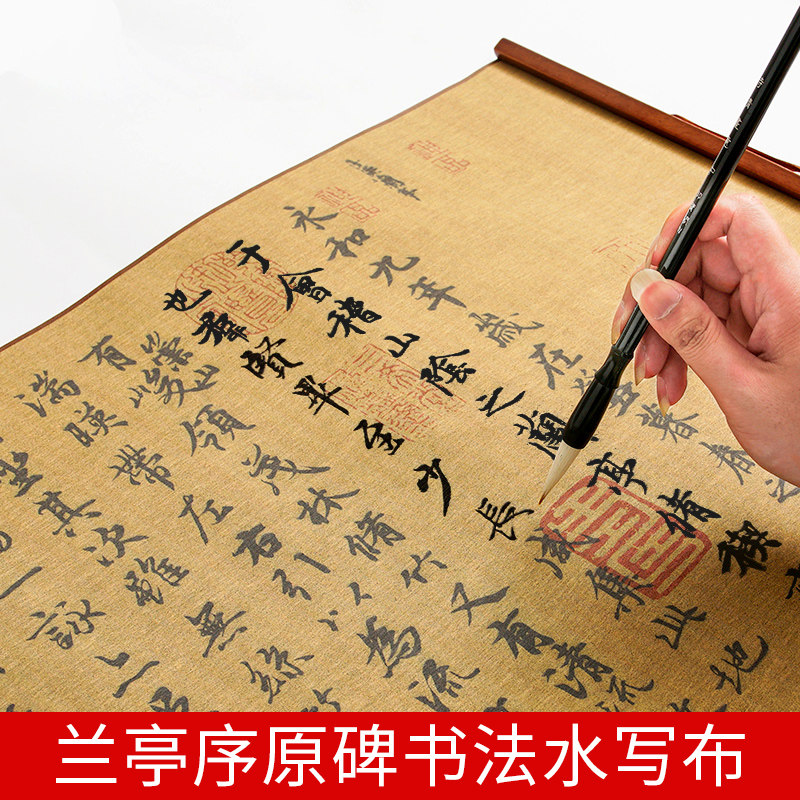 永和九年歲在癸丑暮春之
于會稽山陰之蘭亭脩禊
也羣賢畢至少長咸集此地
有崇山峻領茂林脩竹又有清流
湍暎帶左右引以為流
坐其次雖無絲
一詠
兰亭序原碑书法水写布